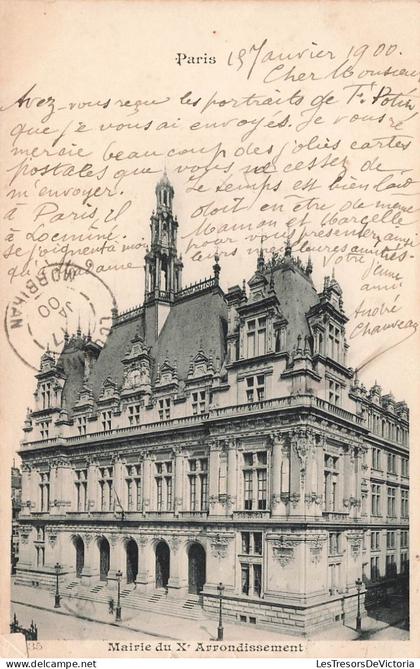 Paris
15 Janvier 1900.
Cher Monsieur
Avez-vous reçue les portraits de
que je vous ai envoyés. Je vous re
mercie beaucoup des jolies cartes
postales que vous ne cessez de
m'envoyer. Le temps est bien laid
à Paris, Il doit en être de même
à Locminé. Maman et Marcelle
se joignent à moi pour vous présenter
que j'ai nos meilleures amitiés.
Votre
jeune
ami
André
Chauveau
MORBIHAN
00
Mairie du Xe Arrondissement
© www.delcampe.net
LesTresorsDesParents